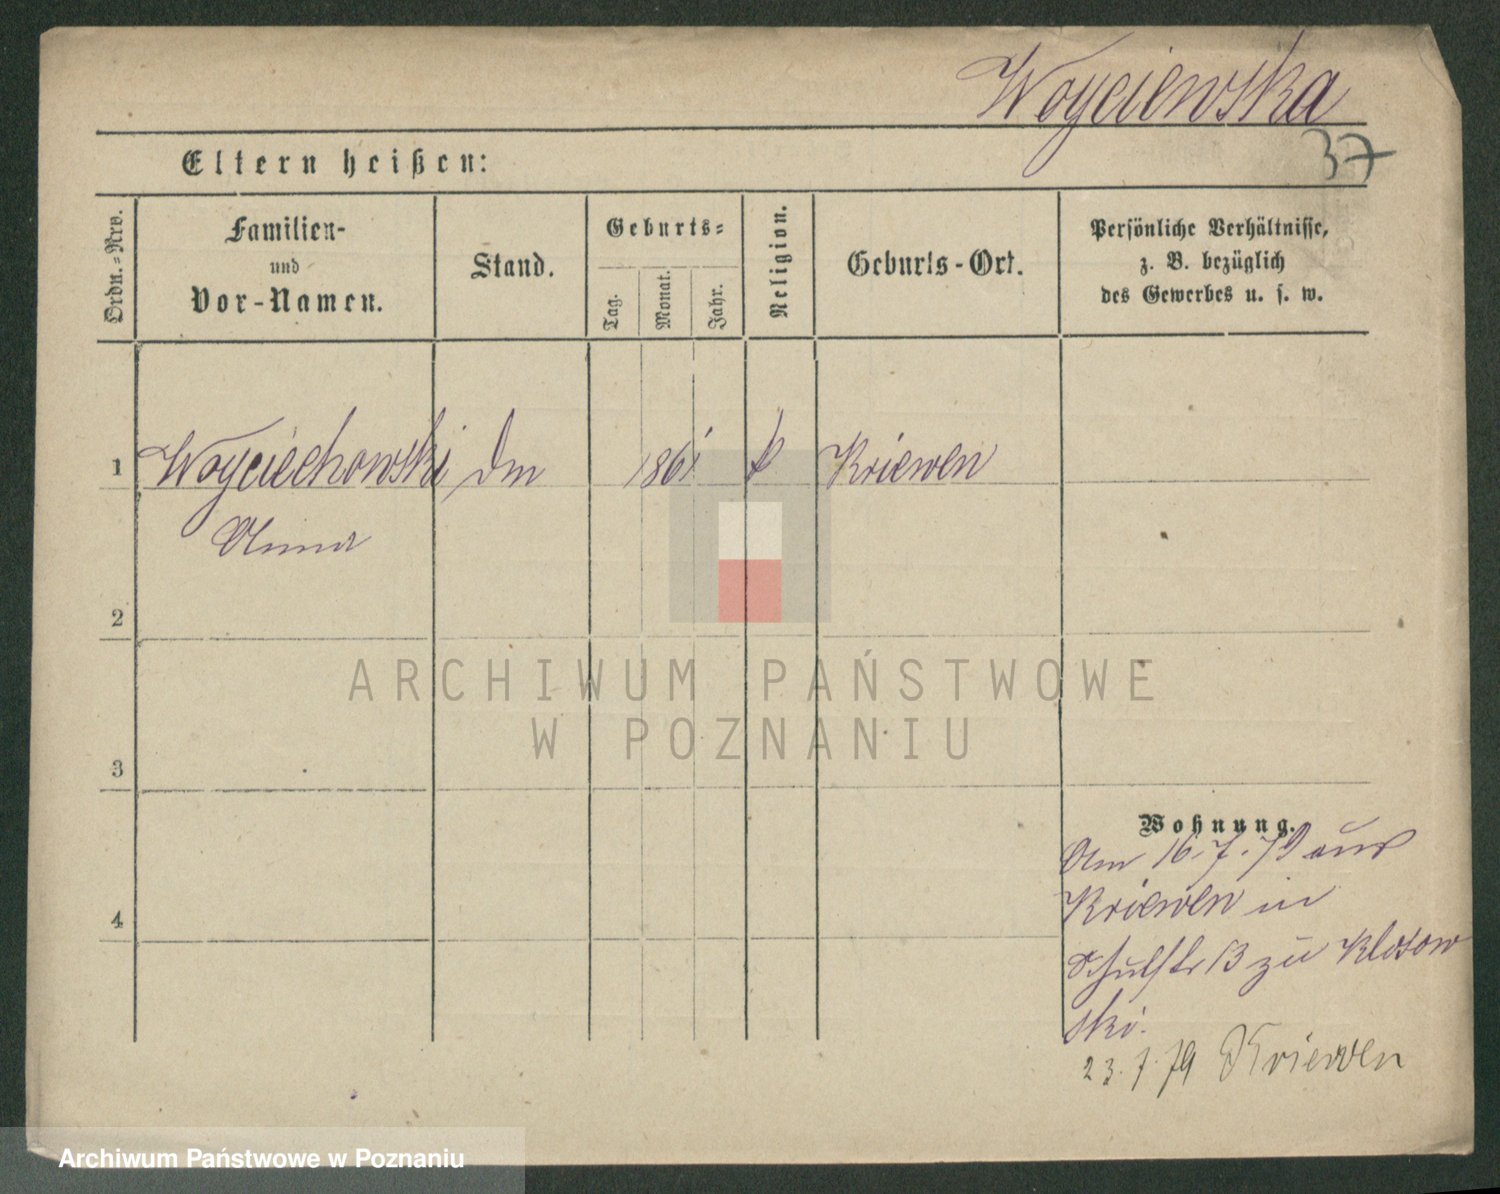 Woyciewska
37
Eltern heißen:
Ordn.-Nro.
Familien-
und
Vor-Namen.
Stand.
Geburts-
Tag.
Monat.
Jahr.
Religion.
Geburts-Ort.
Persönliche Verhältnisse,
z. B. bezüglich
des Gewerbes u. s. w.
1 Woyciechowski Dm 1861 k Kriewen
Anna
2
3
4
Wohnung.
Am 16.7.79 aus
Kriewen in
Schulstr 13 zu Klosow
ski.
23.7.79 Kriewen
ARCHIWUM PAŃSTWOWE
W POZNANIU
Archiwum Państwowe w Poznaniu